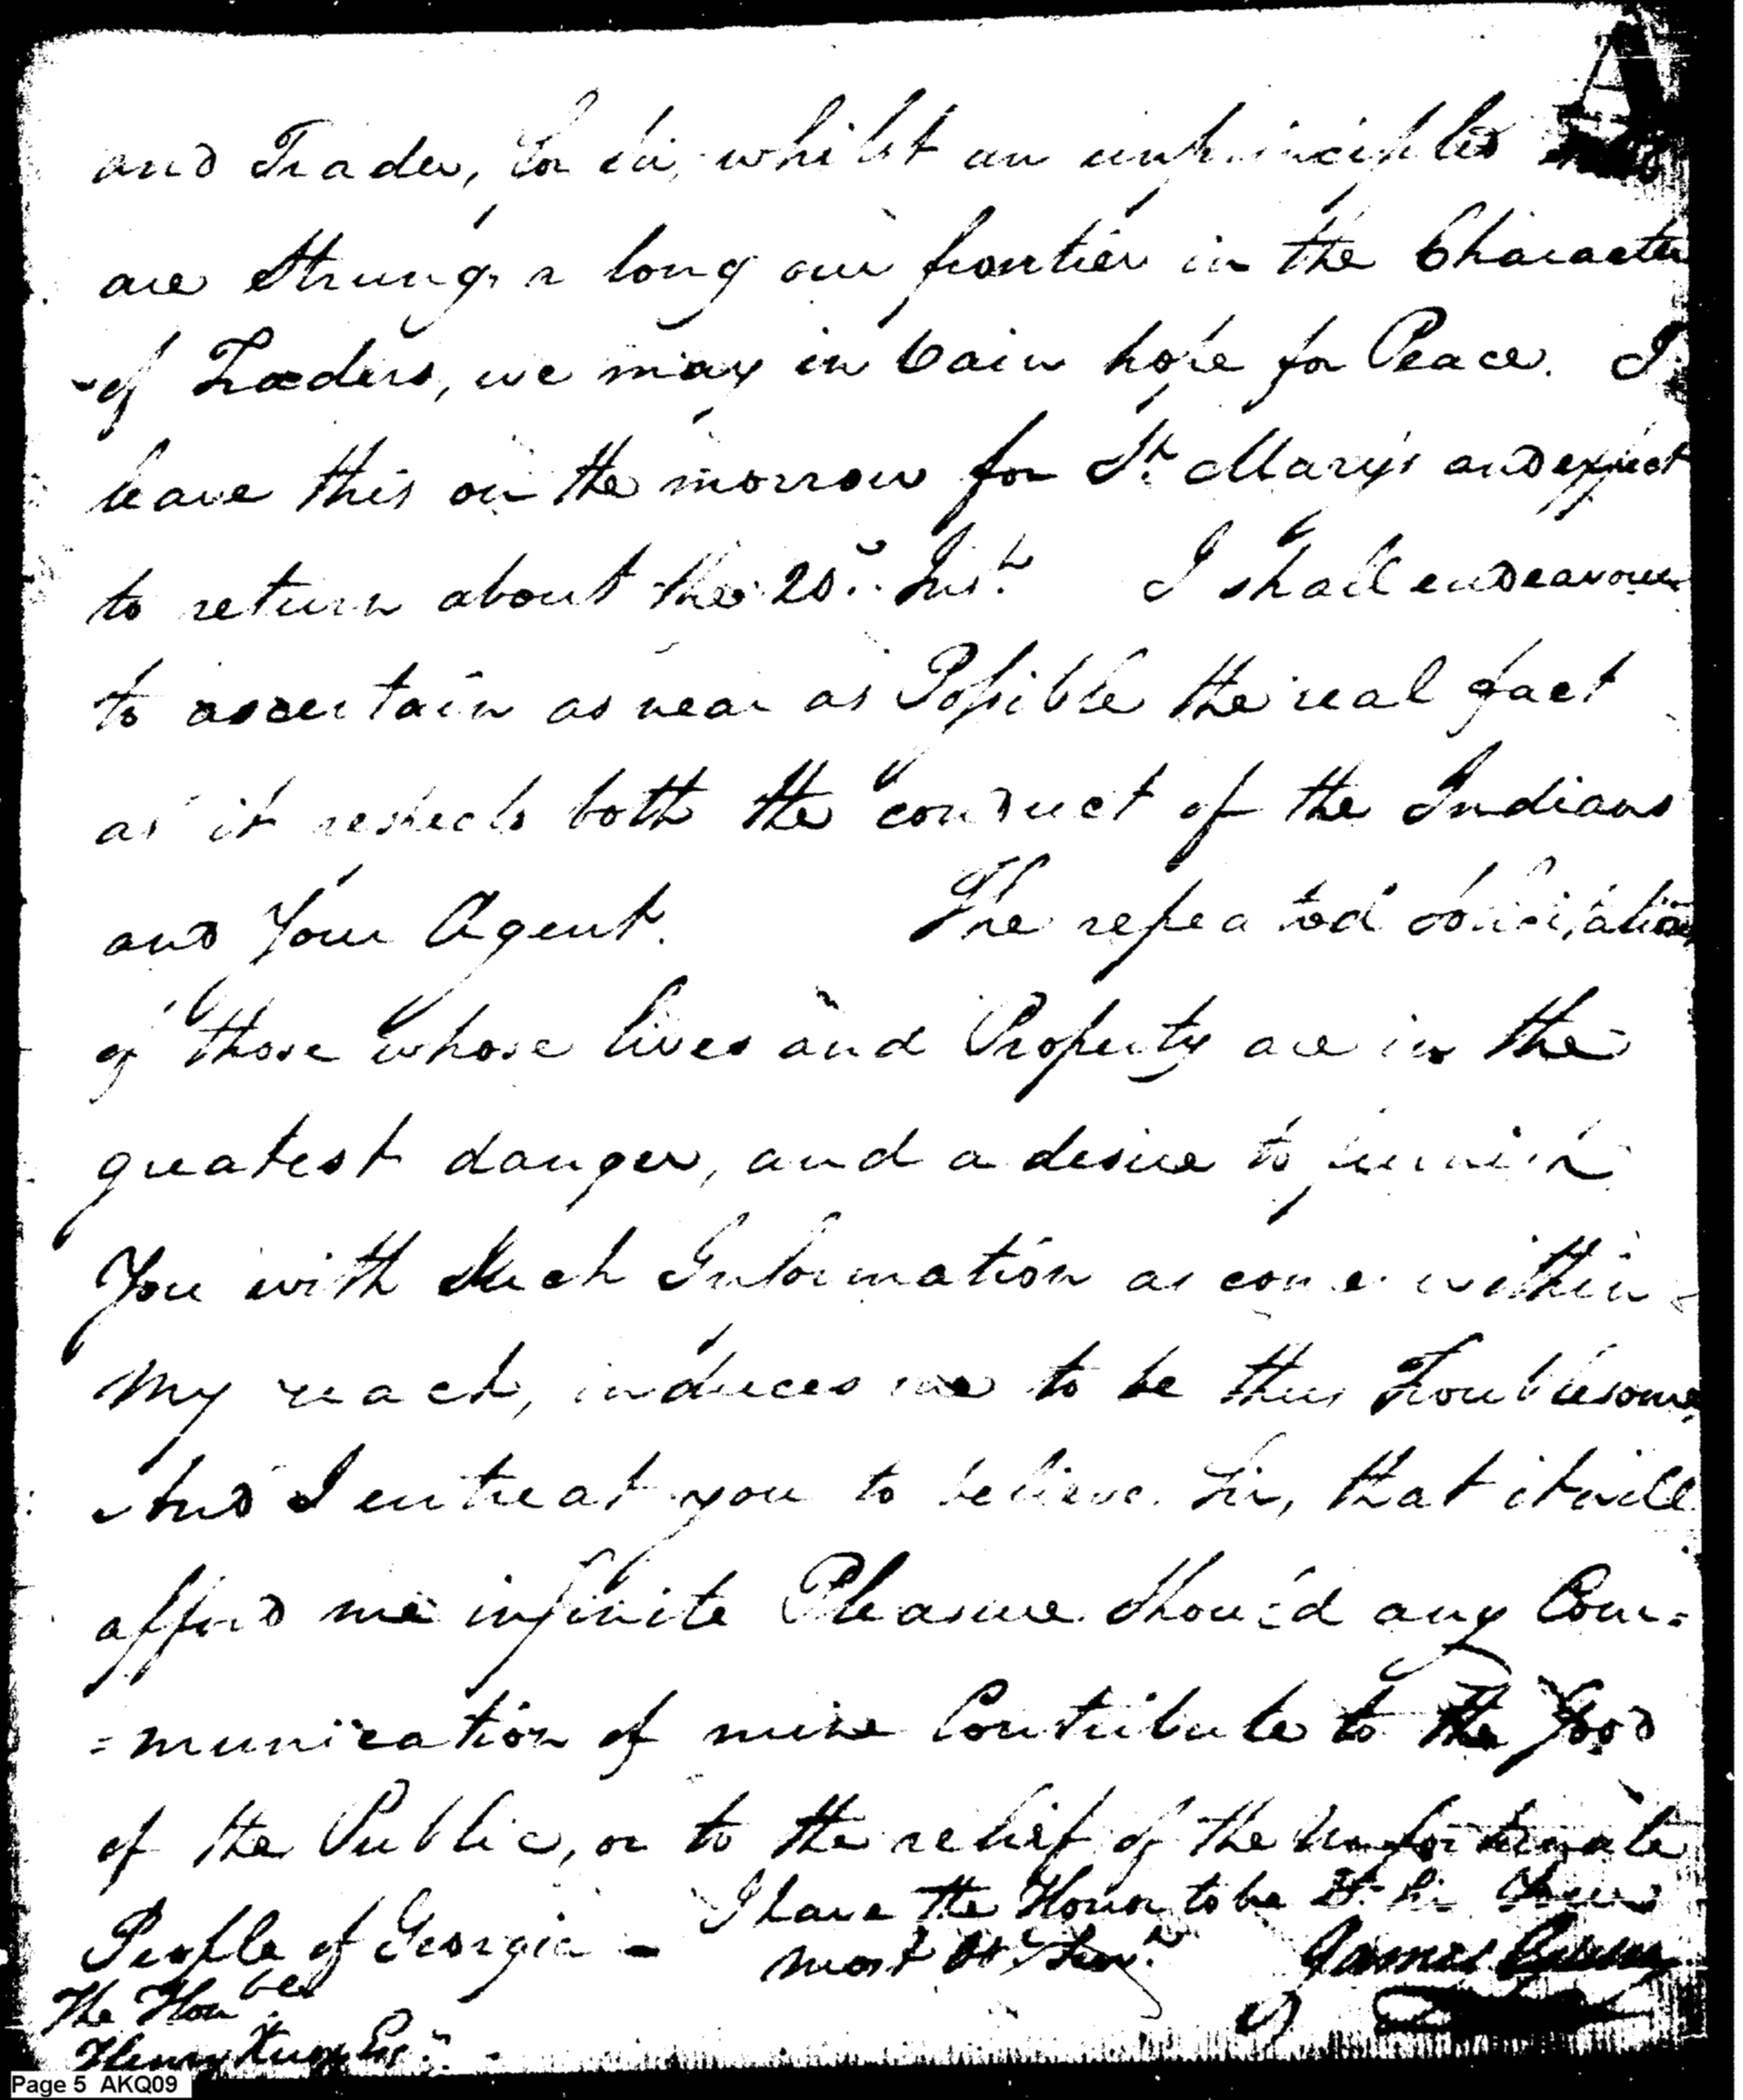 and Trader, for Sir, whilst an unprincipled
are Strung a long our frontier in the Character
of Traders, we may in Vain hope for Peace. I
leave this on the morrow for St. Mary's and expect
to return about the 20th. Inst. I shall endeavour
to ascertain as near as Possible the real fact
as it respects both the conduct of the Indians
and Your Agent. The repeated solicitations
of those whose lives and Property are in the
greatest danger, and a desire to furnish
You with Such Information as come within
My reach, induces me to be thus Troublesome,
And I entreat you to believe Sir, that it will
afford me infinite Pleasure Shou'd any Com=
=munication of mine Contribute to the Good
of the Public, or to the relief of the Unfortunate
People of Georgia - I have the Honor to be
most Ob. Serv.t James
The Honble
Henry Knox Esqr.
Page 5 AKQ09